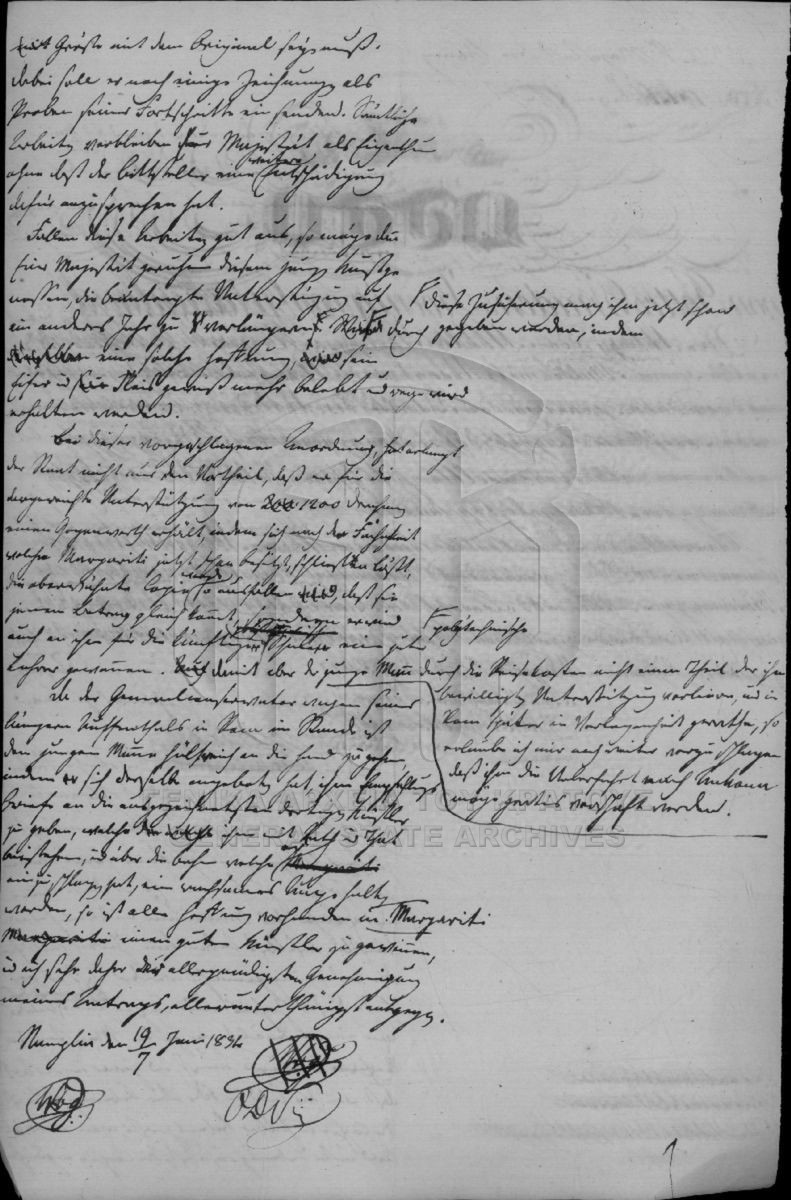 Größe mit dem Original seyn muß.
dabei soll er noch einige Zeichnungen als
Proben seiner Fortschritte einsenden. Sämtliche
Arbeiten verbleiben Eur Majestät als Eigenthum
ohne daß der Bittsteller eine weitere Entschädigung
dafür anzusprechen hat.
Fallen diese Arbeiten gut aus, so mögen
Eure Majestät geruhen diesem jungen
die beantragte Unterstützung auf
ein anderes Jahr zu verlängern. durch
eine solche Hoffnung, sein
Eifer und Fleis gewiß mehr belebt und rege wird
erhalten werden.
diese Zusicherung mag ihm jetzt schon
gegeben werden, indem
Bei dieser vorgeschlagenen Anordnung,
der Staat nicht nur den Vortheil, daß er für die
dargereichte Unterstützung von 1200 Drachmen
einen Gegenwerth erhält, indem sich nach der Fähigkeit
welche Margariti jetzt schon besitzt, schließen läßt,
die oberwähnte Copie so ausfallen, daß sie
jenem Betrag gleich kommt, sondern er wird
auch an ihm für die künftige polytechnische Schule einen guten
Lehrer gewinnen. damit aber der junge Mann durch die Reisekosten nicht einen Theil der ihm
bewilligten Unterstützung verliere, und in
Rom später in Verlegenheit gerathe, so
erlaube ich mir noch weiter vorzuschlagen
daß ihm die Ueberfahrt nach Ankona
möge gratis verschaft werden.
Da der Generalconservator wegen seines
längern Aufenthalts in Rom im Stande ist
dem jungen Manne hülfreich an die Hand zu gehen,
indem sich derselbe angeboten hat, ihm Empfehlungs
Briefe an die ausgezeichnetsten dortigen Künstler
zu geben, welche ihm mit Rath u That
beistehen, und über die Bahn welche
einzuschlagen hat, ein wachsames Auge halten
werden, so ist alle Hoffnung vorhanden in Margariti
einen guten Künstler zu gewinnen,
und ich sehe daher der allergnädigsten Genehmigung
meines Antrags, allerunterthänigst entgegen.
Nauplia den 19/7 Juni 1834